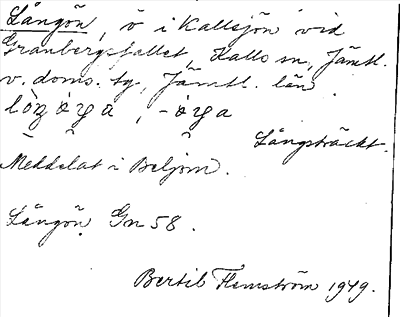 Långön, ö i Kallsjön vid
Granbergsfallet, Kalls sn, Jämtl.
v. doms. tg, Jämtl. län.
Långsträckt.
Meddelat i Beljom.
Långön. Gn 58.
Bertil Flemström 1949.